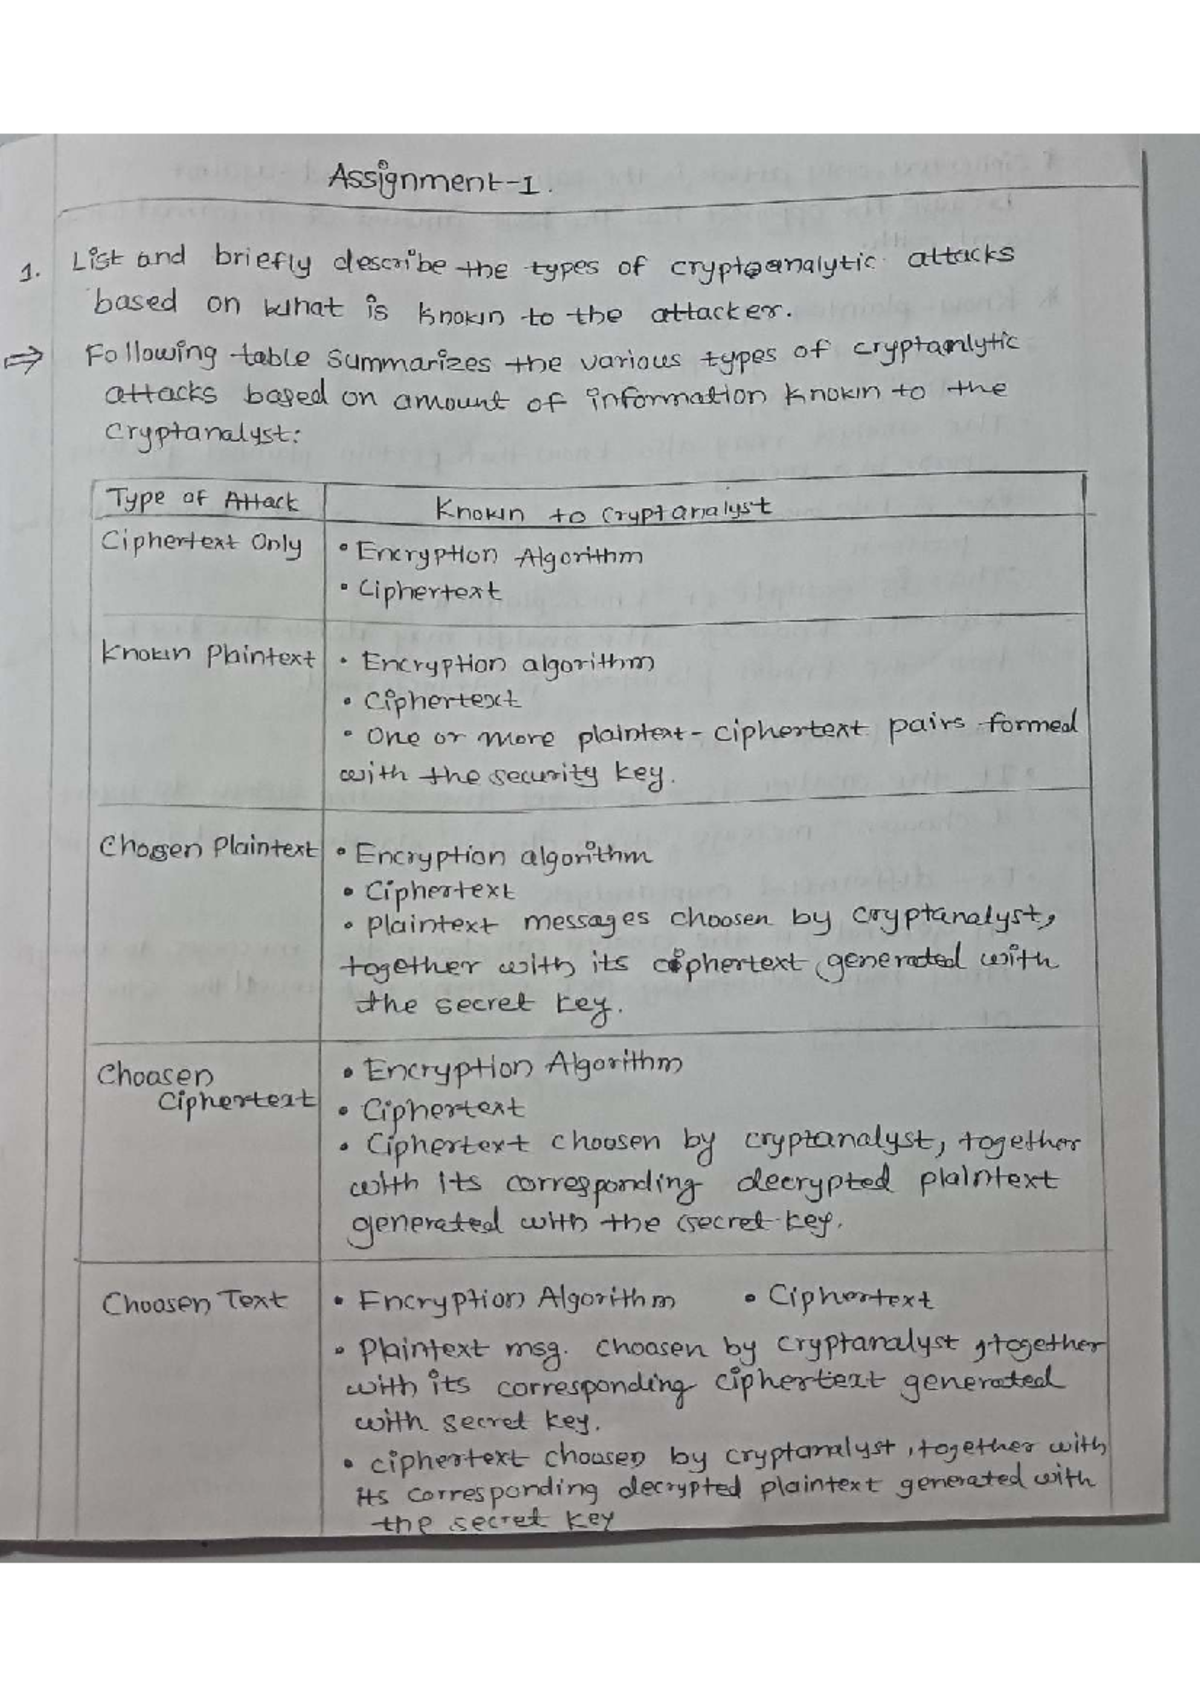 Assignment-1.
1. List and briefly describe the types of cryptoanalytic attacks
based on what is known to the attacker.
⇒ Following table summarizes the various types of cryptanlytic
attacks based on amount of information known to the
cryptanalyst:
Type of Attack | Known to Cryptanalyst
Ciphertext Only | • Encryption Algorithm
• Ciphertext
Known Plaintext | • Encryption algorithm
• Ciphertext
• One or more plaintext-ciphertext pairs formed
with the security key.
Choosen Plaintext | • Encryption algorithm
• Ciphertext
• Plaintext messages choosen by cryptanalyst,
together with its ciphertext generated with
the secret key.
Choosen | • Encryption Algorithm
Ciphertext | • Ciphertext
• Ciphertext choosen by cryptanalyst, together
with its corresponding decrypted plaintext
generated with the secret key.
Choosen Text | • Encryption Algorithm • Ciphertext
• Plaintext msg. choosen by cryptanalyst, together
with its corresponding ciphertext generated
with secret key.
• ciphertext choosen by cryptanalyst, together with
its corresponding decrypted plaintext generated with
the secret key